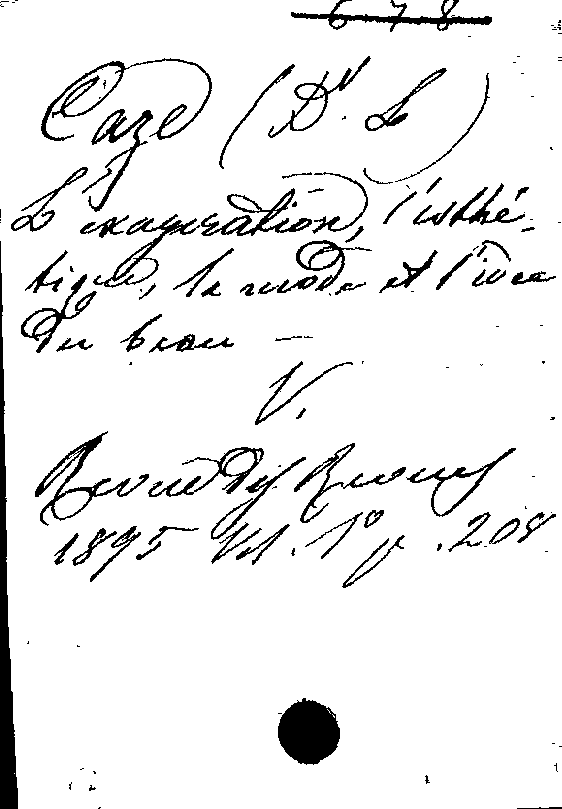 6 7 8
Caze (Dr. L)
L'exagération, l'esthé-
tique, la mode et l'idée
du beau —
V.
Revue des Revues
1895 Vol. 1º p. 208